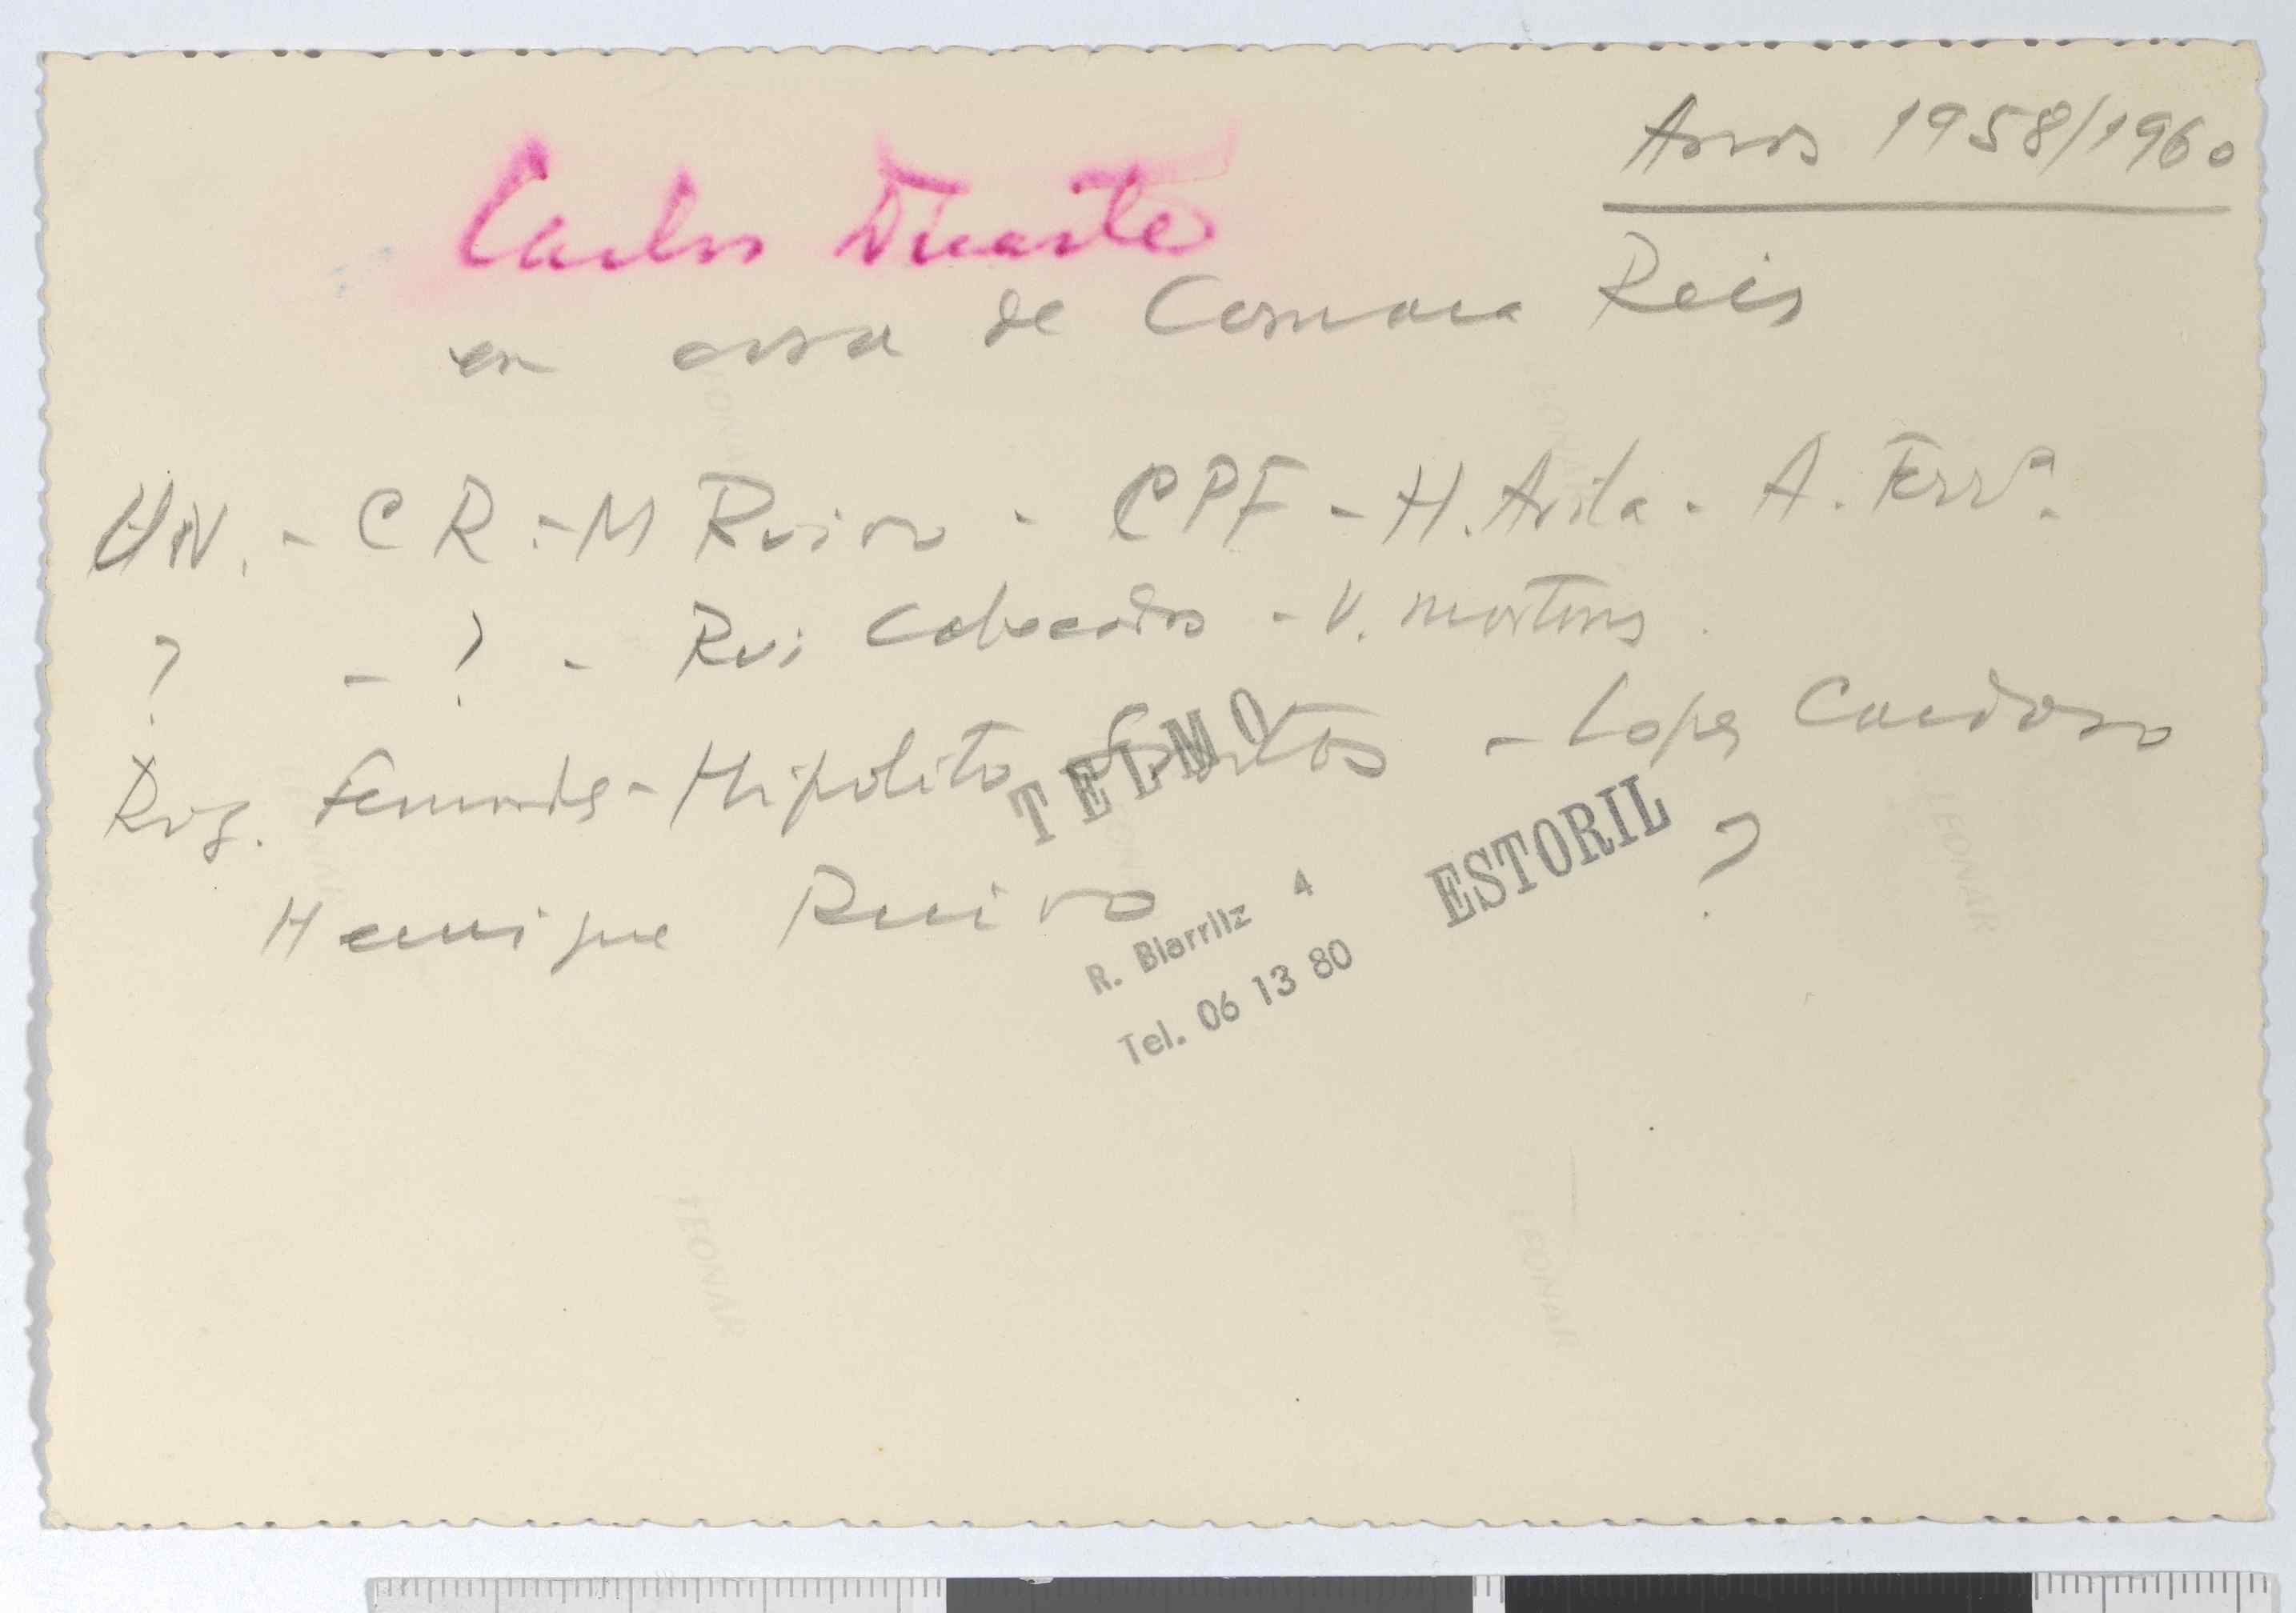 Anos 1958/1960
Carlos Duarte
em casa de Camara Reis
HN. - CR. - M Ruivo - CPF - H. Avila - A. Ferrª.
? - ? - Rui Cabeçadas - V. Martins
Rog. Fernandes - Hipolito Santos - Lopes Cardoso
Henrique Ruivo ?
TELMO
ESTORIL
R. Biarritz 4
Tel. 06 13 80
LEONAR
LEONAR
LEONAR
LEONAR